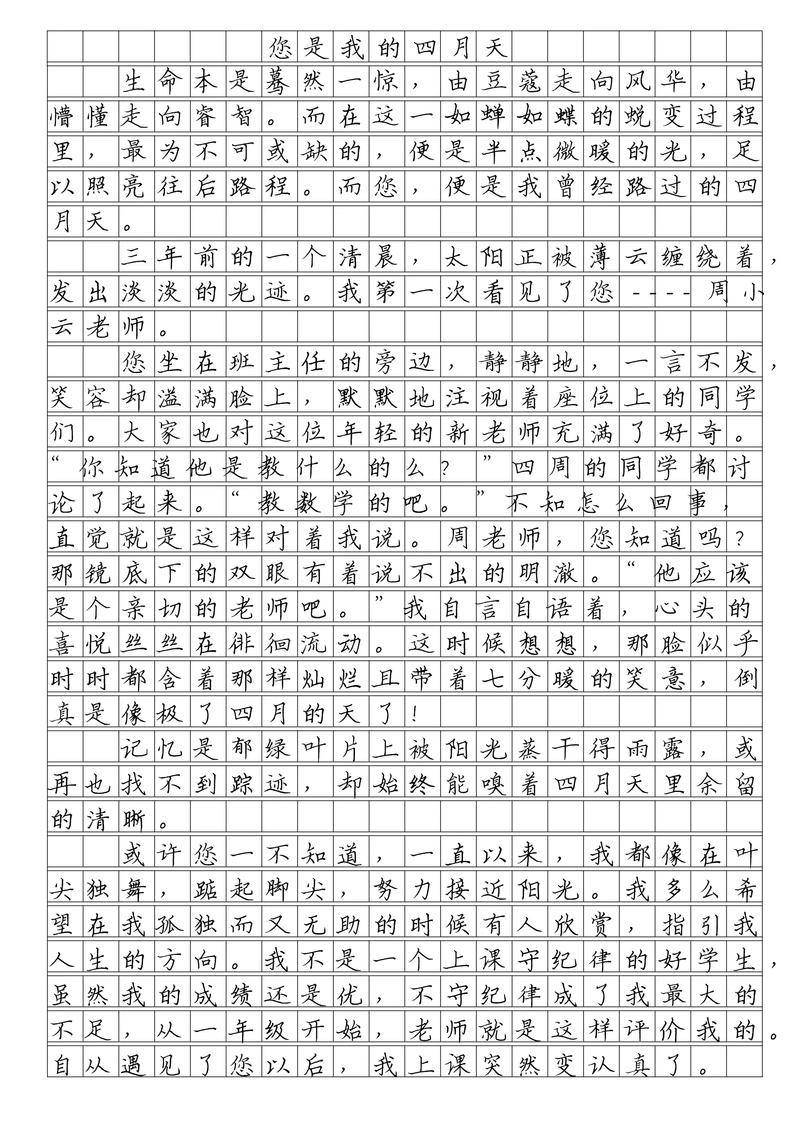 您是我的四月天
生命本是蓦然一惊，由豆蔻走向风华，由
懵懂走向睿智。而在这一如蝉如蝶的蜕变过程
里，最为不可或缺的，便是半点微暖的光，足
以照亮往后路程。而您，便是我曾经路过的四
月天。
三年前的一个清晨，太阳正被薄云缠绕着，
发出淡淡的光迹。我第一次看见了您----周小
云老师。
您坐在班主任的旁边，静静地，一言不发，
笑容却溢满脸上，默默地注视着座位上的同学
们。大家也对这位年轻的新老师充满了好奇。
“你知道他是教什么的么？”四周的同学都讨
论了起来。“教数学的吧。”不知怎么回事，
直觉就是这样对着我说。周老师，您知道吗？
那镜底下的双眼有着说不出的明澈。“他应该
是个亲切的老师吧。”我自言自语着，心头的
喜悦丝丝在徘徊流动。这时候想想，那脸似乎
时时都含着那样灿烂且带着七分暖的笑意，倒
真是像极了四月的天了！
记忆是郁绿叶片上被阳光蒸干得雨露，或
再也找不到踪迹，却始终能嗅着四月天里余留
的清晰。
或许您一不知道，一直以来，我都像在叶
尖独舞，踮起脚尖，努力接近阳光。我多么希
望在我孤独而又无助的时候有人欣赏，指引我
人生的方向。我不是一个上课守纪律的好学生，
虽然我的成绩还是优，不守纪律成了我最大的
不足，从一年级开始，老师就是这样评价我的。
自从遇见了您以后，我上课突然变认真了。